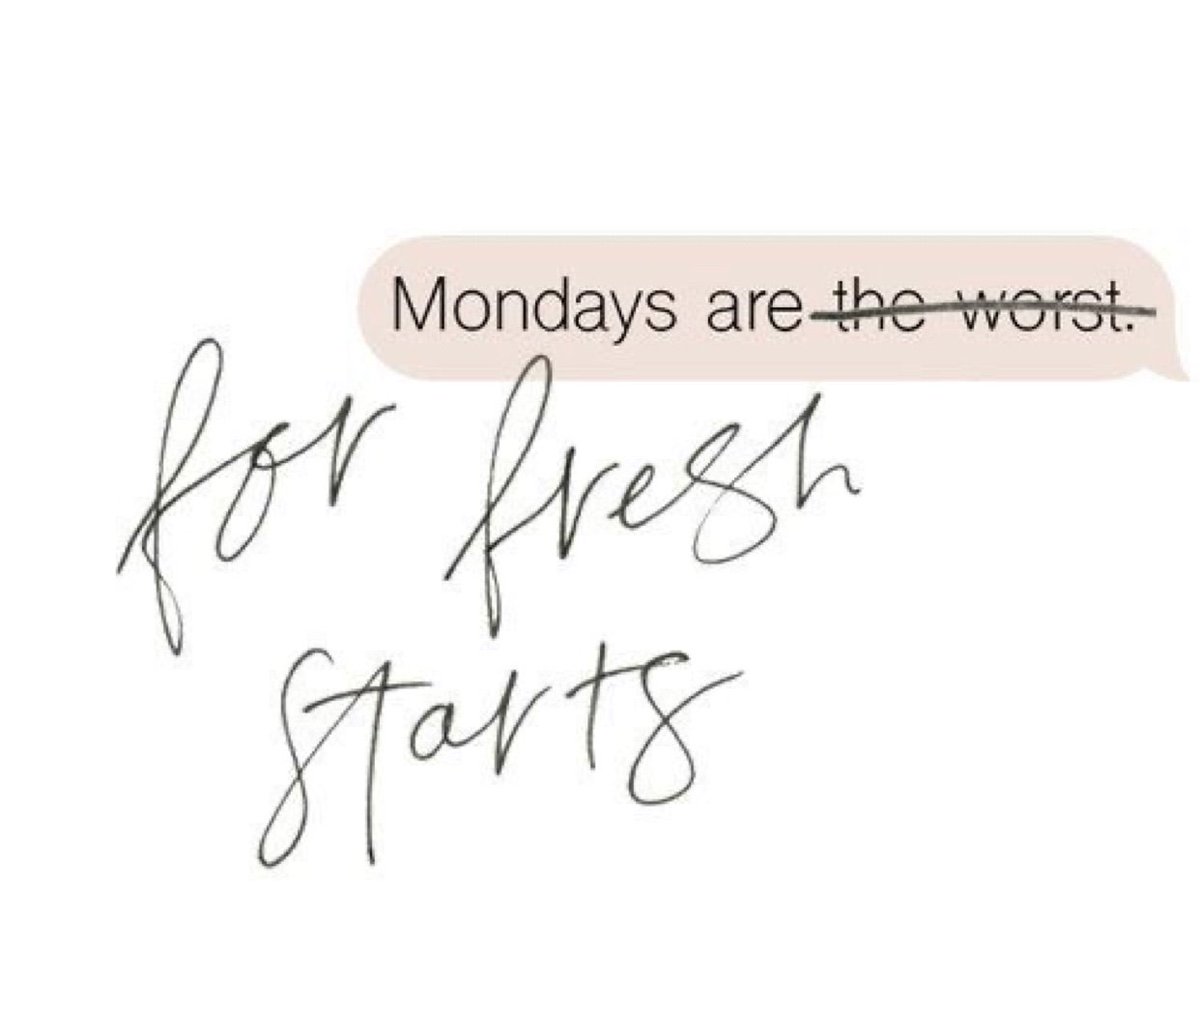 Mondays are the worst.
for fresh
starts